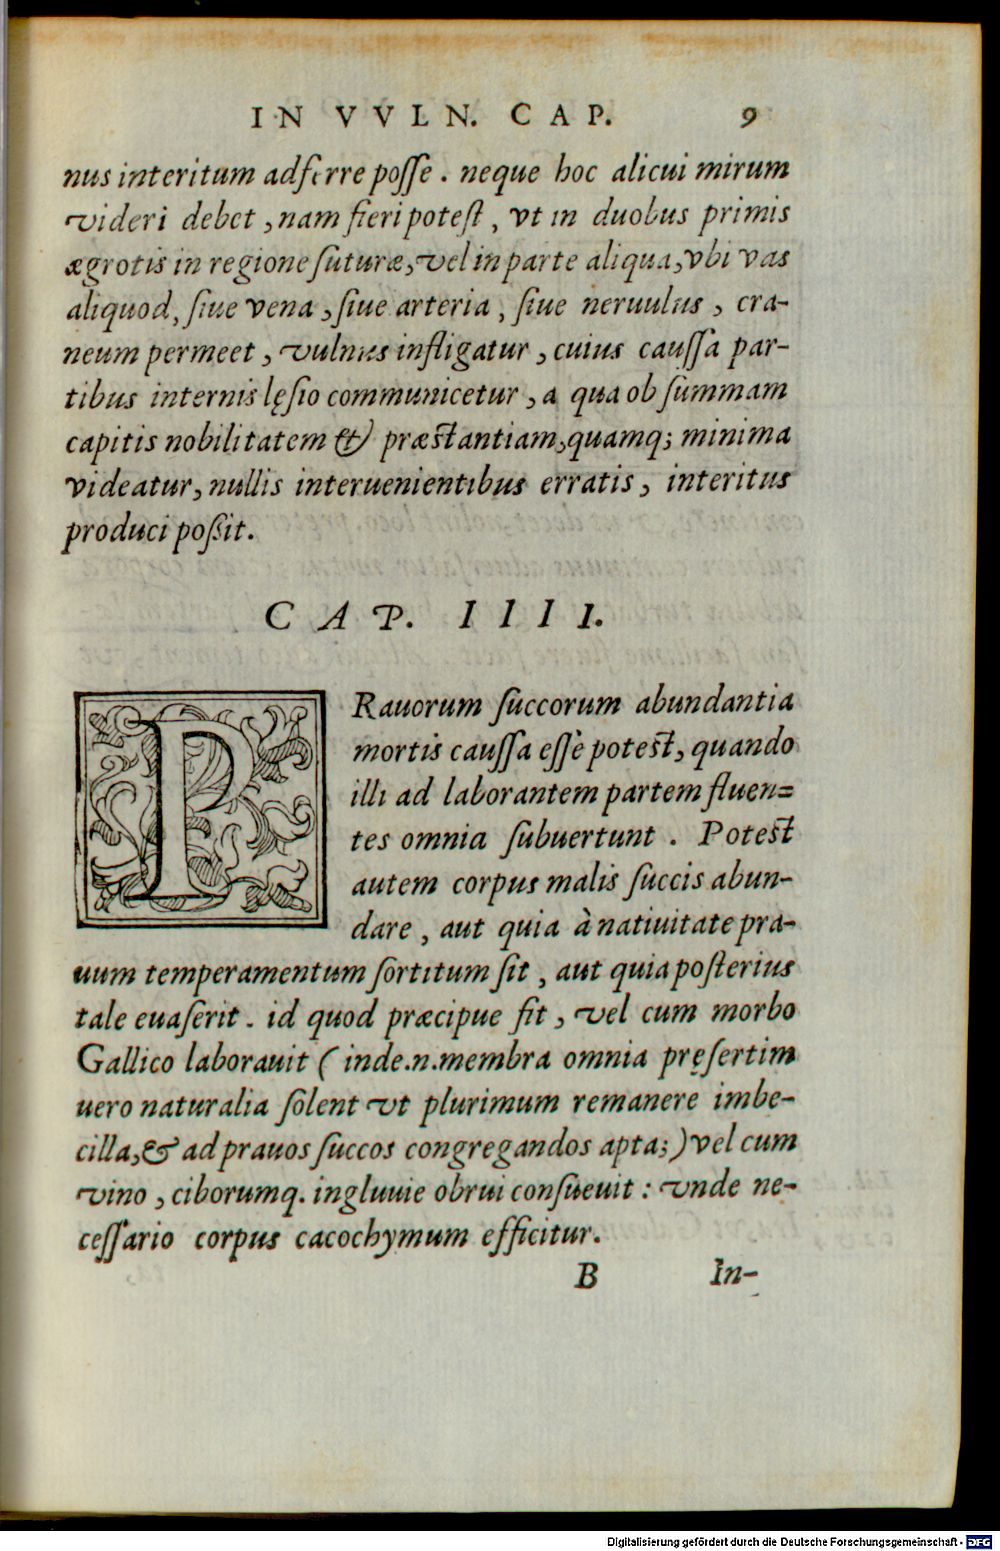 IN VVLN. CAP. 9
nus interitum adferre posse. neque hoc alicui mirum
videri debet, nam fieri potest, vt in duobus primis
ægrotis in regione suturæ, vel in parte aliqua, vbi vas
aliquod, siue vena, siue arteria, siue neruulus, cra-
neum permeet, vulnus infligatur, cuius caussa par-
tibus internis lęsio communicetur, a qua ob summam
capitis nobilitatem & præstantiam, quamq; minima
videatur, nullis interuenientibus erratis, interitus
produci poßit.
CAP. IIII.
PRauorum succorum abundantia
mortis caussa essè potest, quando
illi ad laborantem partem fluen=
tes omnia subuertunt. Potest
autem corpus malis succis abun-
dare, aut quia à natiuitate pra-
uum temperamentum sortitum sit, aut quia posterius
tale euaserit. id quod præcipue fit, vel cum morbo
Gallico laborauit (inde.n.membra omnia pręsertim
uero naturalia solent vt plurimum remanere imbe-
cilla, & ad prauos succos congregandos apta;) vel cum
vino, ciborumq. ingluuie obrui consueuit: vnde ne-
cessario corpus cacochymum efficitur.
B In-
Digitalisierung gefördert durch die Deutsche Forschungsgemeinschaft - DFG